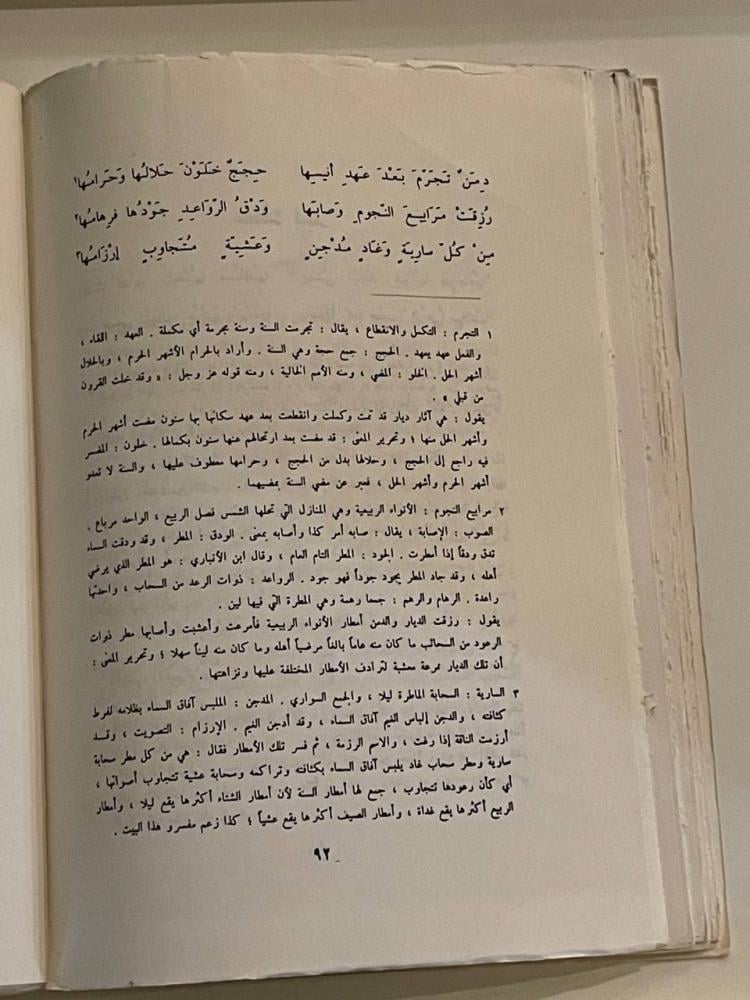 دِمَنٌ تَجَرَّمَ بَعْدَ عَهْدِ أَنِيسِها حِجَجٌ خَلَوْنَ حَلالُها وَحَرامُها١
رُزِقَتْ مَرابيعَ النّجومِ وَصابَها وَدْقُ الرّواعِدِ جَوْدُها فرِهامُها٢
مِنْ كُلّ سارِيَةٍ وَغادٍ مُدْجِنٍ وَعَشِيّةٍ مُتَجاوِبٍ إرْزامُها٣
١ التجرم : التكمل والانقطاع ، يقال : تجرمت السنة وسنة مجرمة أي مكملة . العهد : اللقاء ،
والفعل عهد يعهد . الحجج : جمع حجة وهي السنة . وأراد بالحرام الأشهر الحرم ، وبالحلال
أشهر الحل . الخلو : المضي ، ومنه الأمم الخالية ، ومنه قوله عز وجل : « وقد خلت القرون
من قبلي » .
يقول : هي آثار ديار قد تمت وكملت وانقطعت بعد عهد سكانها بها سنون مضت أشهر الحرم
وأشهر الحل منها ؛ وتحرير المعنى : قد مضت بعد ارتحالهم عنها سنون بكمالها . خلون : المضمر
فيه راجع إلى الحجج ، وحلالها بدل من الحجج ، وحرامها معطوف عليها ، والسنة لا تعدو
أشهر الحرم وأشهر الحل ، فعبر عن مضي السنة بمضيهما .
٢ مرابيع النجوم : الأنواء الربيعية وهي المنازل التي تحلها الشمس فصل الربيع ، الواحد مرباع .
الصوب : الإصابة ، يقال : صابه أمر كذا وأصابه بمعنى . الودق : المطر ، وقد ودقت السماء
تدق ودقاً إذا أمطرت . الجود : المطر التام العام ، وقال ابن الأنباري : هو المطر الذي يرضي
أهله ، وقد جاد المطر يجود جوداً فهو جود . الرواعد : ذوات الرعد من السحاب ، واحدتها
راعدة . الرهام والرهم : جمعا رهمة وهي المطرة التي فيها لين .
يقول : رزقت الديار والدمن أمطار الأنواء الربيعية فأمرعت وأعشبت وأصابها مطر ذوات
الرعود من السحائب ما كان منه عاماً بالغاً مرضياً أهله وما كان منه ليناً سهلا ؛ وتحرير المعنى :
أن تلك الديار ممرعة معشبة لترادف الأمطار المختلفة عليها ونزاهتها .
٣ السارية : السحابة الماطرة ليلا ، والجمع السواري . المدجن : الملبس آفاق السماء بظلامه لفرط
كثافته ، والدجن إلباس الغيم آفاق السماء ، وقد أدجن الغيم . الإرزام : التصويت ، وقد
أرزمت الناقة إذا رغت ، والاسم الرزمة ، ثم فسر تلك الأمطار فقال : هي من كل مطر سحابة
سارية ومطر سحاب غاد يلبس آفاق السماء بكثافته وتراكمه وسحابة عشية تتجاوب أصواتها ،
أي كأن رعودها تتجاوب ، جمع لها أمطار السنة لأن أمطار الشتاء أكثرها يقع ليلا ، وأمطار
الربيع أكثرها يقع غداة ، وأمطار الصيف أكثرها يقع عشياً ؛ كذا زعم مفسرو هذا البيت .
٩٢